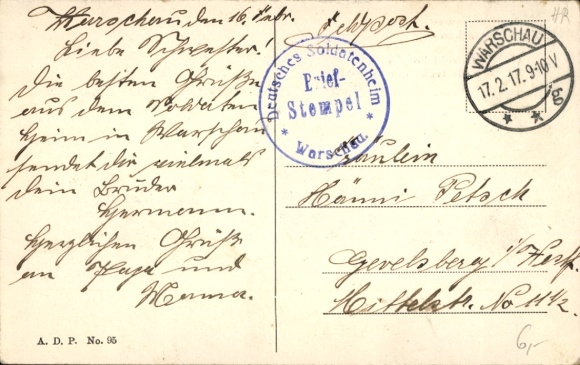 Warschau den 16. Febr.
Liebe Schwester!
Die besten Grüße
aus dem Soldaten
heim in Warschau
sendet dir vielmals
dein Bruder
Hermann.
Herzlichen Grüße
an Papa und
Mama.
A. D. P. No. 95
Feldpost.
Deutsches Soldatenheim
Brief-
Stempel
* Warschau. *
WARSCHAU
17.2.17.9-10V
* * b9
HR
Fräulein
Hänni Petsch
Gevelsberg i/Westf.
Mittelstr. No 11½.
6,-